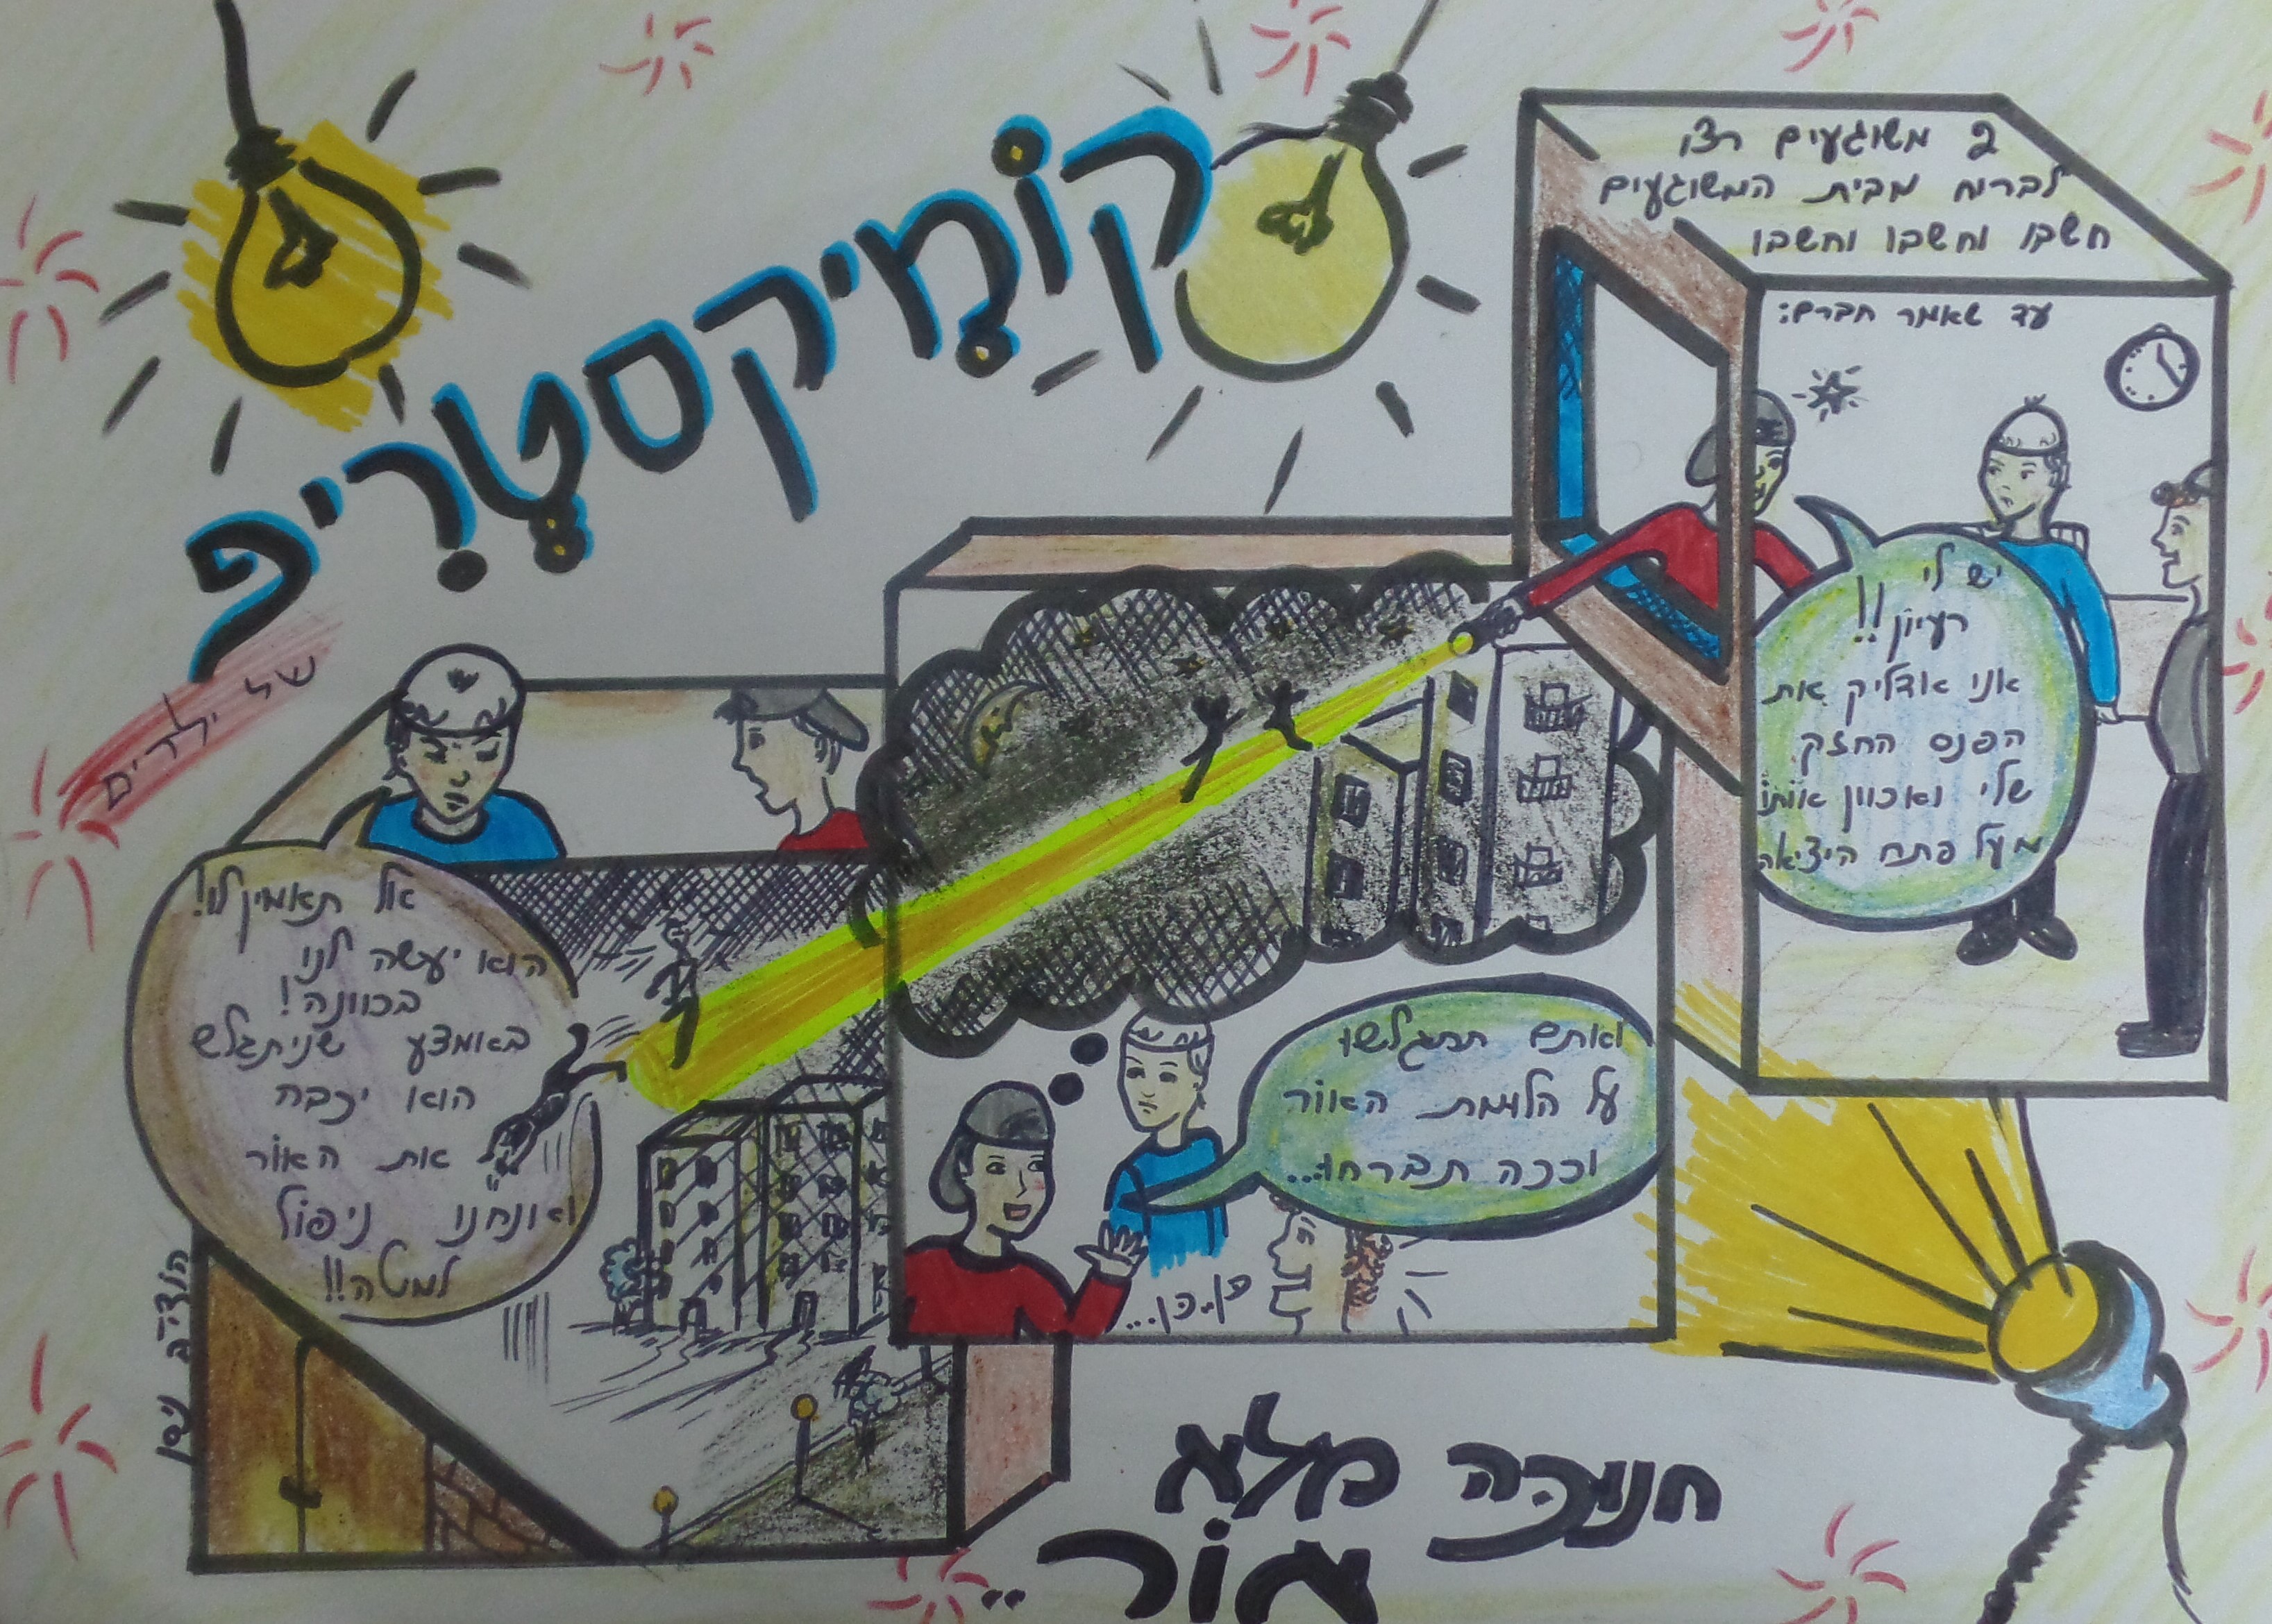 קוֹמִיקסטְרִיפ
של ילדים
2 משוגעים רצו
לברוח מבית המשוגעים
חשבו וחשבו וחשבו
עד שאמר חברם:
יש לי
רעיון!!
אני אדליק את
הפנס החזק
שלי ואכוון אותו
מעל פתח היציאה
ואתם תתגלשו
על אלומת האור
וככה תברחו...
כן..כן...
אל תאמין לו!
הוא יעשה לנו
בכוונה!
באמצע שניתגלש
הוא יכבה
את האור
ואנחנו ניפול
למטה!!
הודיה ניסן
חנוכה מלא
אור..